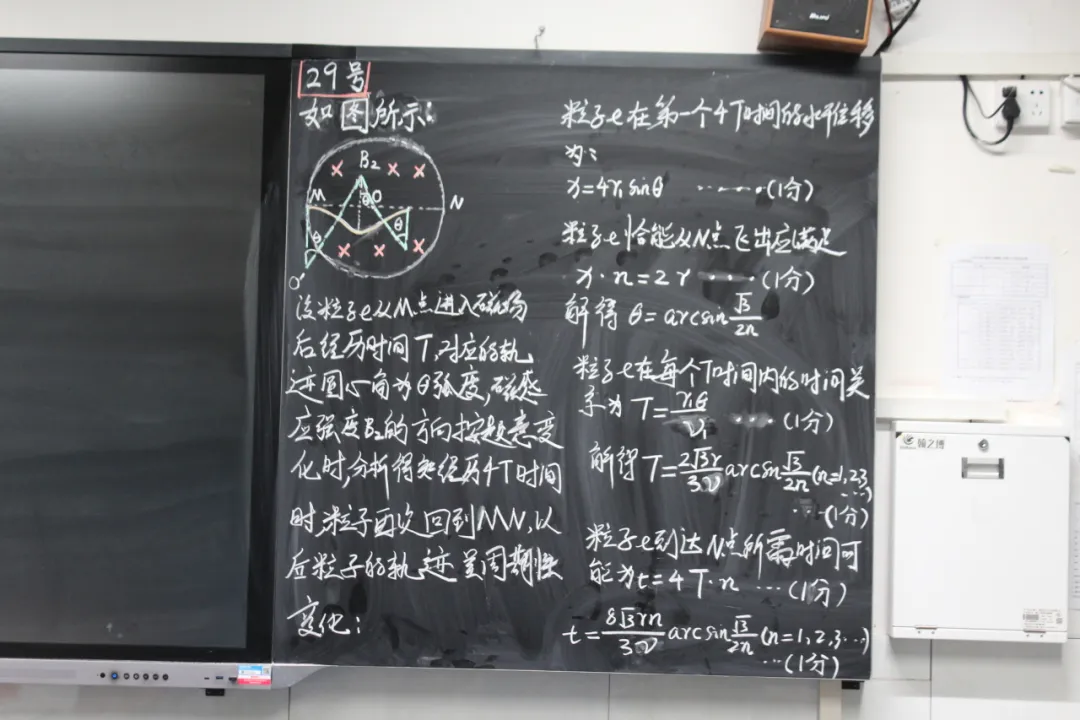 29号
如图所示:
B₂
M
O
N
θ
θ
θ
O'
设粒子e从M点进入磁场
后经历时间T,对应的轨
迹圆心角为θ弧度,磁感
应强度B₂的方向按题意变
化时,分析得知经历4T时间
时,粒子再次回到MN,以
后粒子的轨迹呈周期性
变化:
粒子e在第一个4T时间的水平位移
为:
x=4r₁sinθ ……(1分)
粒子e恰能从N点飞出应满足
x·n=2r ……(1分)
解得 θ=arcsin√3/2n
粒子e在每个T时间内的时间关
系为 T=r₁θ/v₁ ……(1分)
解得 T=2√3r/3v arcsin√3/2n (n=1,2,3
…)
…(1分)
粒子e到达N点所需时间可
能为t=4T·n …(1分)
t=8√3rn/3v arcsin√3/2n (n=1,2,3…)
…(1分)
翰之博